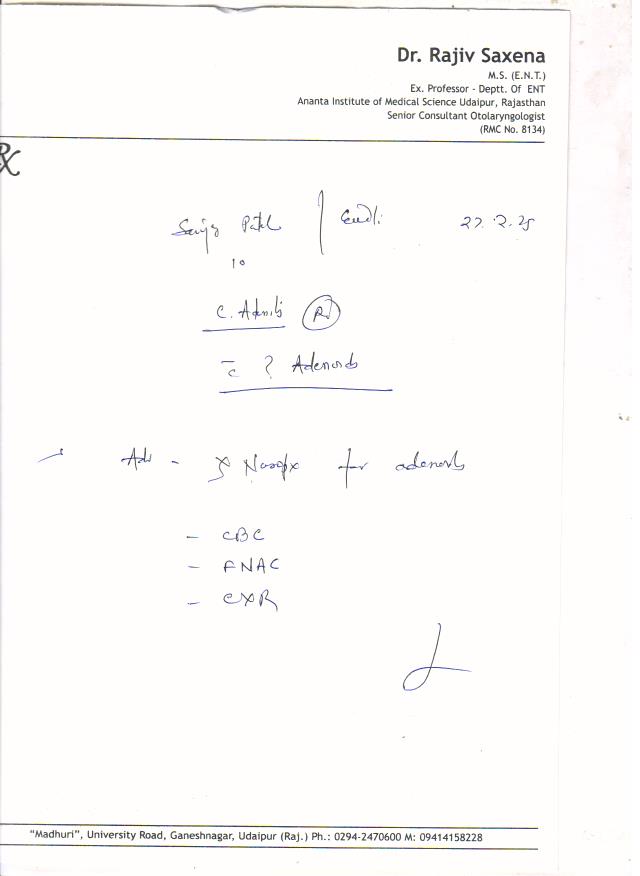 Dr. Rajiv Saxena
M.S. (E.N.T.)
Ex. Professor - Deptt. Of ENT
Ananta Institute of Medical Science Udaipur, Rajasthan
Senior Consultant Otolaryngologist
(RMC No. 8134)
Rx
Patel 27.2.25
10
C. Adenitis Rt
c̄ ? Adenoids
Adv - Nasopx for adenoids
- CBC
- FNAC
- CXR
"Madhuri", University Road, Ganeshnagar, Udaipur (Raj.) Ph.: 0294-2470600 M: 09414158228